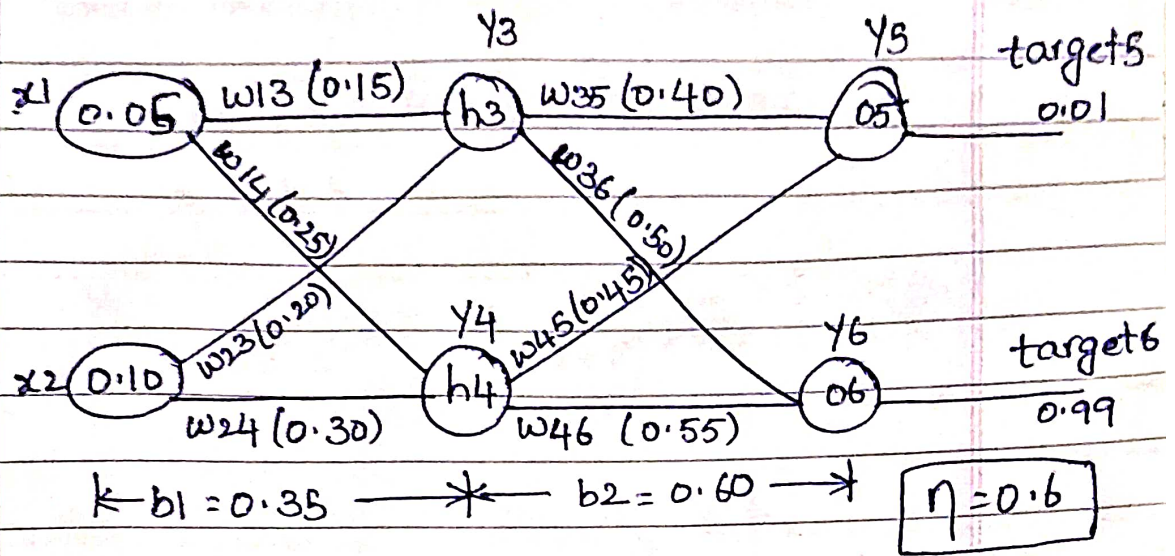 Y3 Y5
target5
x1 0.05 w13 (0.15) h3 w35 (0.40) 05 0.01
w14 (0.25) w36 (0.50)
w23 (0.20) w45 (0.45)
Y4 Y6
target6
x2 0.10 h4 06
w24 (0.30) w46 (0.55) 0.99
b1 = 0.35 b2 = 0.60 η = 0.6